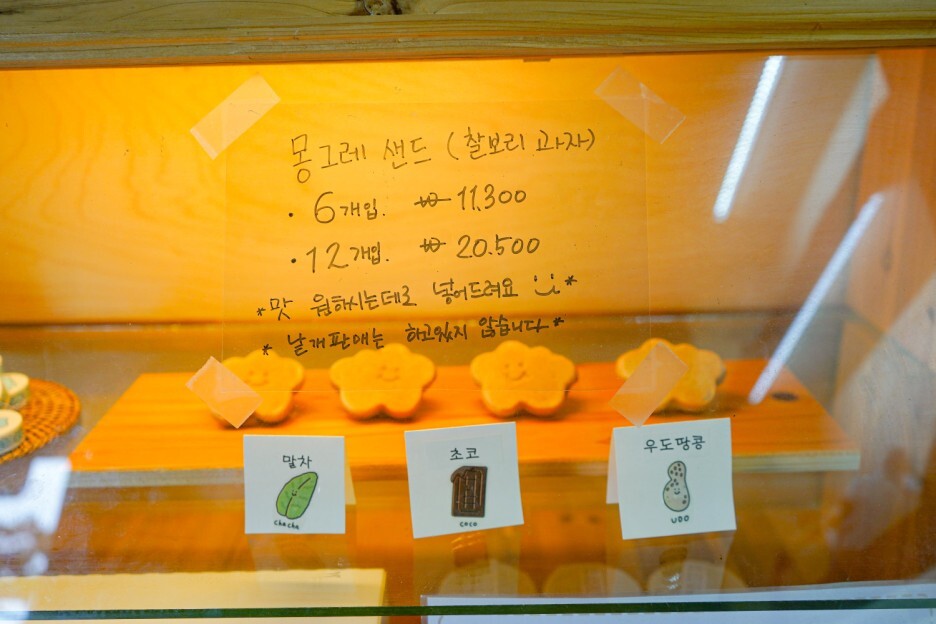 몽그레 샌드 (찰보리 과자)
· 6개입. ₩ 11.300
· 12개입. ₩ 20.500
*맛 원하시는데로 넣어드려요 :) *
* 낱개판매는 하고있지 않습니다*
말차
chacha
초코
coco
우도땅콩
UDO